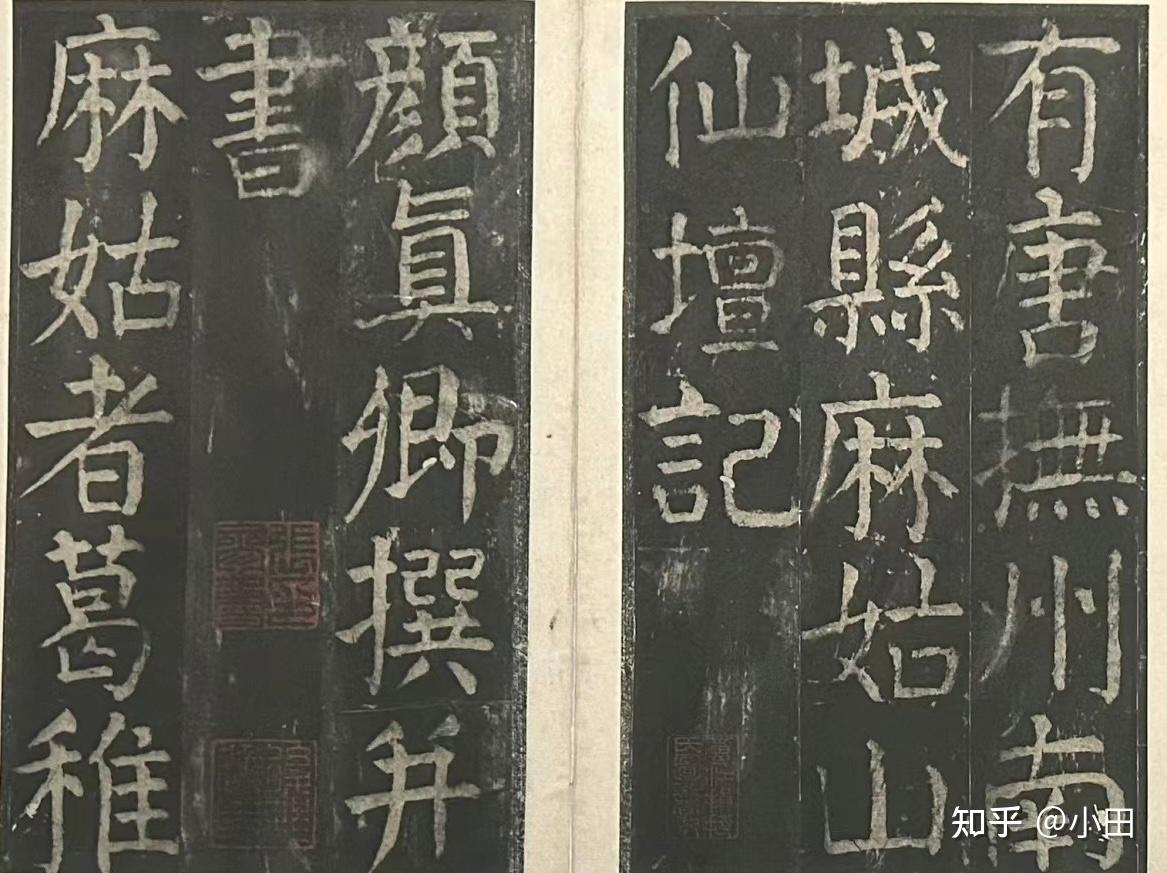 有唐撫州南
城縣麻姑山
仙壇記
顏真卿撰并
書
麻姑者葛稚
知乎 @小田